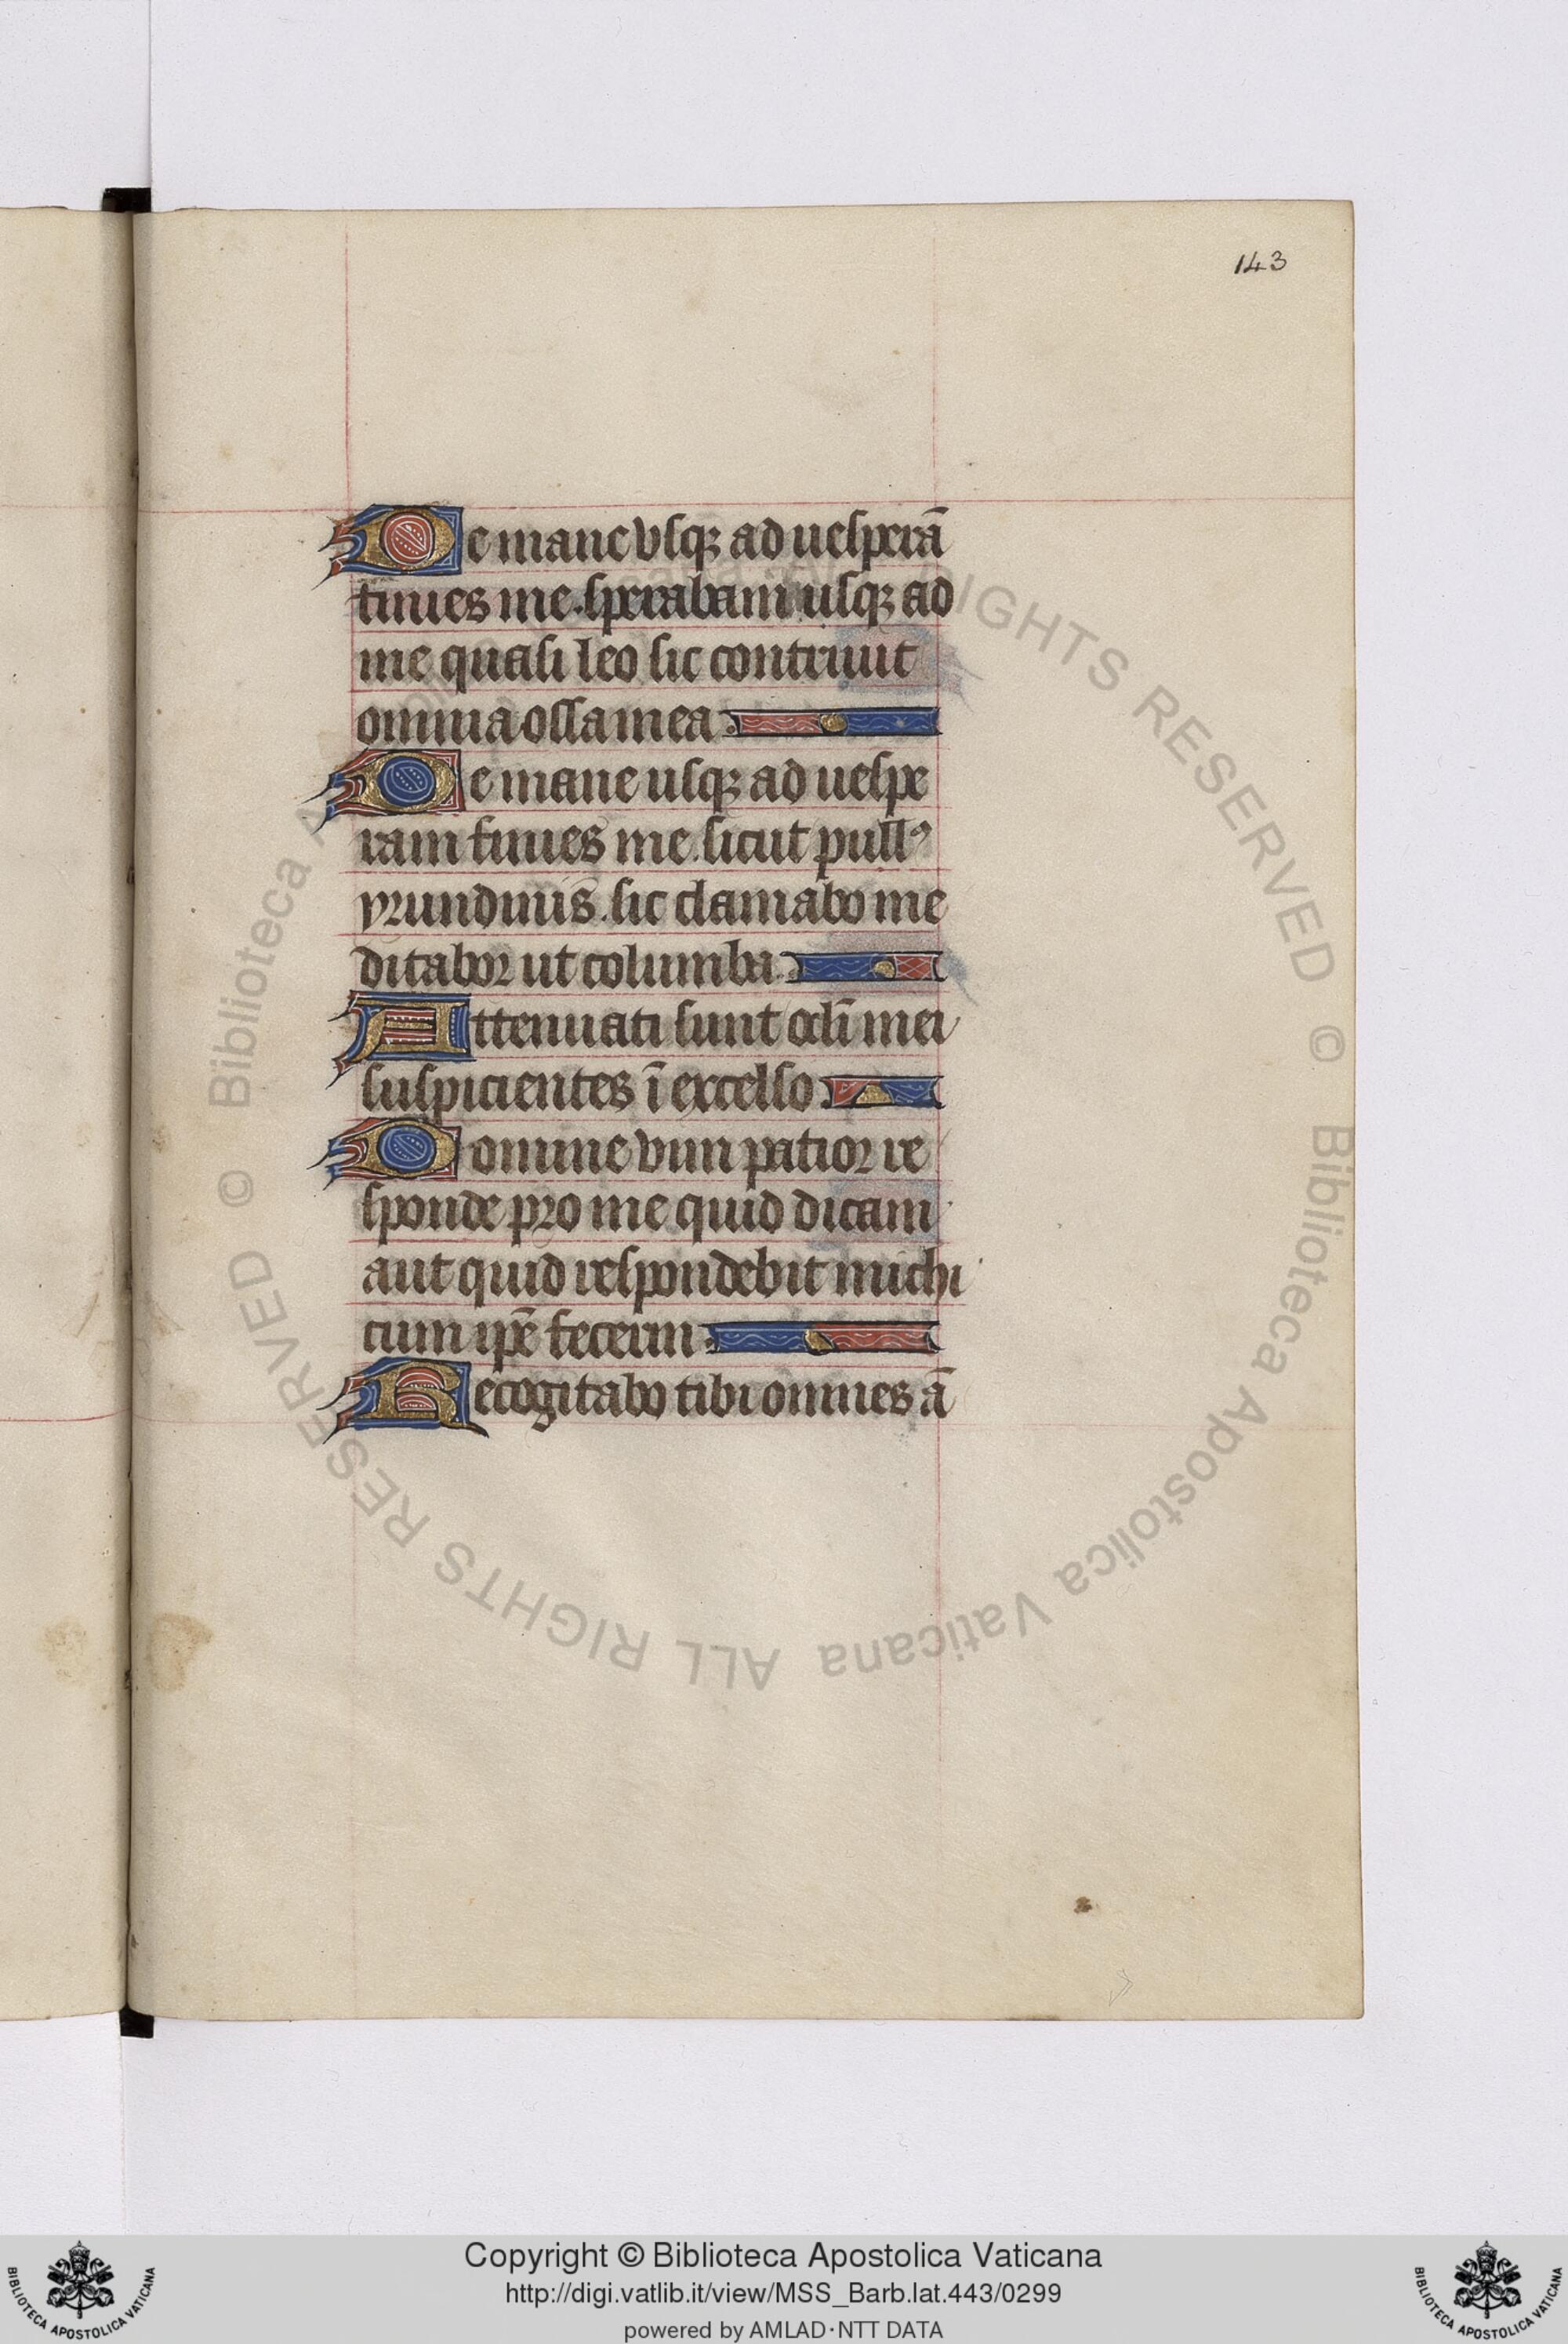 143
De mane vsqꝫ ad uesperā
finies me. sperabam usqꝫ ad
me quasi leo sic contriuit
omnia ossa mea.
De mane usqꝫ ad uespe
ram finies me. sicut pullꝰ
yrundinis. sic clamabo me
ditabor ut columba.
Attenuati sunt ocl̄i mei
suspicientes ī excelso.
Domine vim patior re
sponde pro me quid dicam
aut quid respondebit michi
cum ip̄e fecerim.
Recogitabo tibi omnes ā
© Biblioteca Apostolica Vaticana ALL RIGHTS RESERVED © Biblioteca Apostolica Vaticana ALL RIGHTS RESERVED
Copyright © Biblioteca Apostolica Vaticana
http://digi.vatlib.it/view/MSS_Barb.lat.443/0299
powered by AMLAD·NTT DATA
BIBLIOTECA APOSTOLICA VATICANA
BIBLIOTECA APOSTOLICA VATICANA